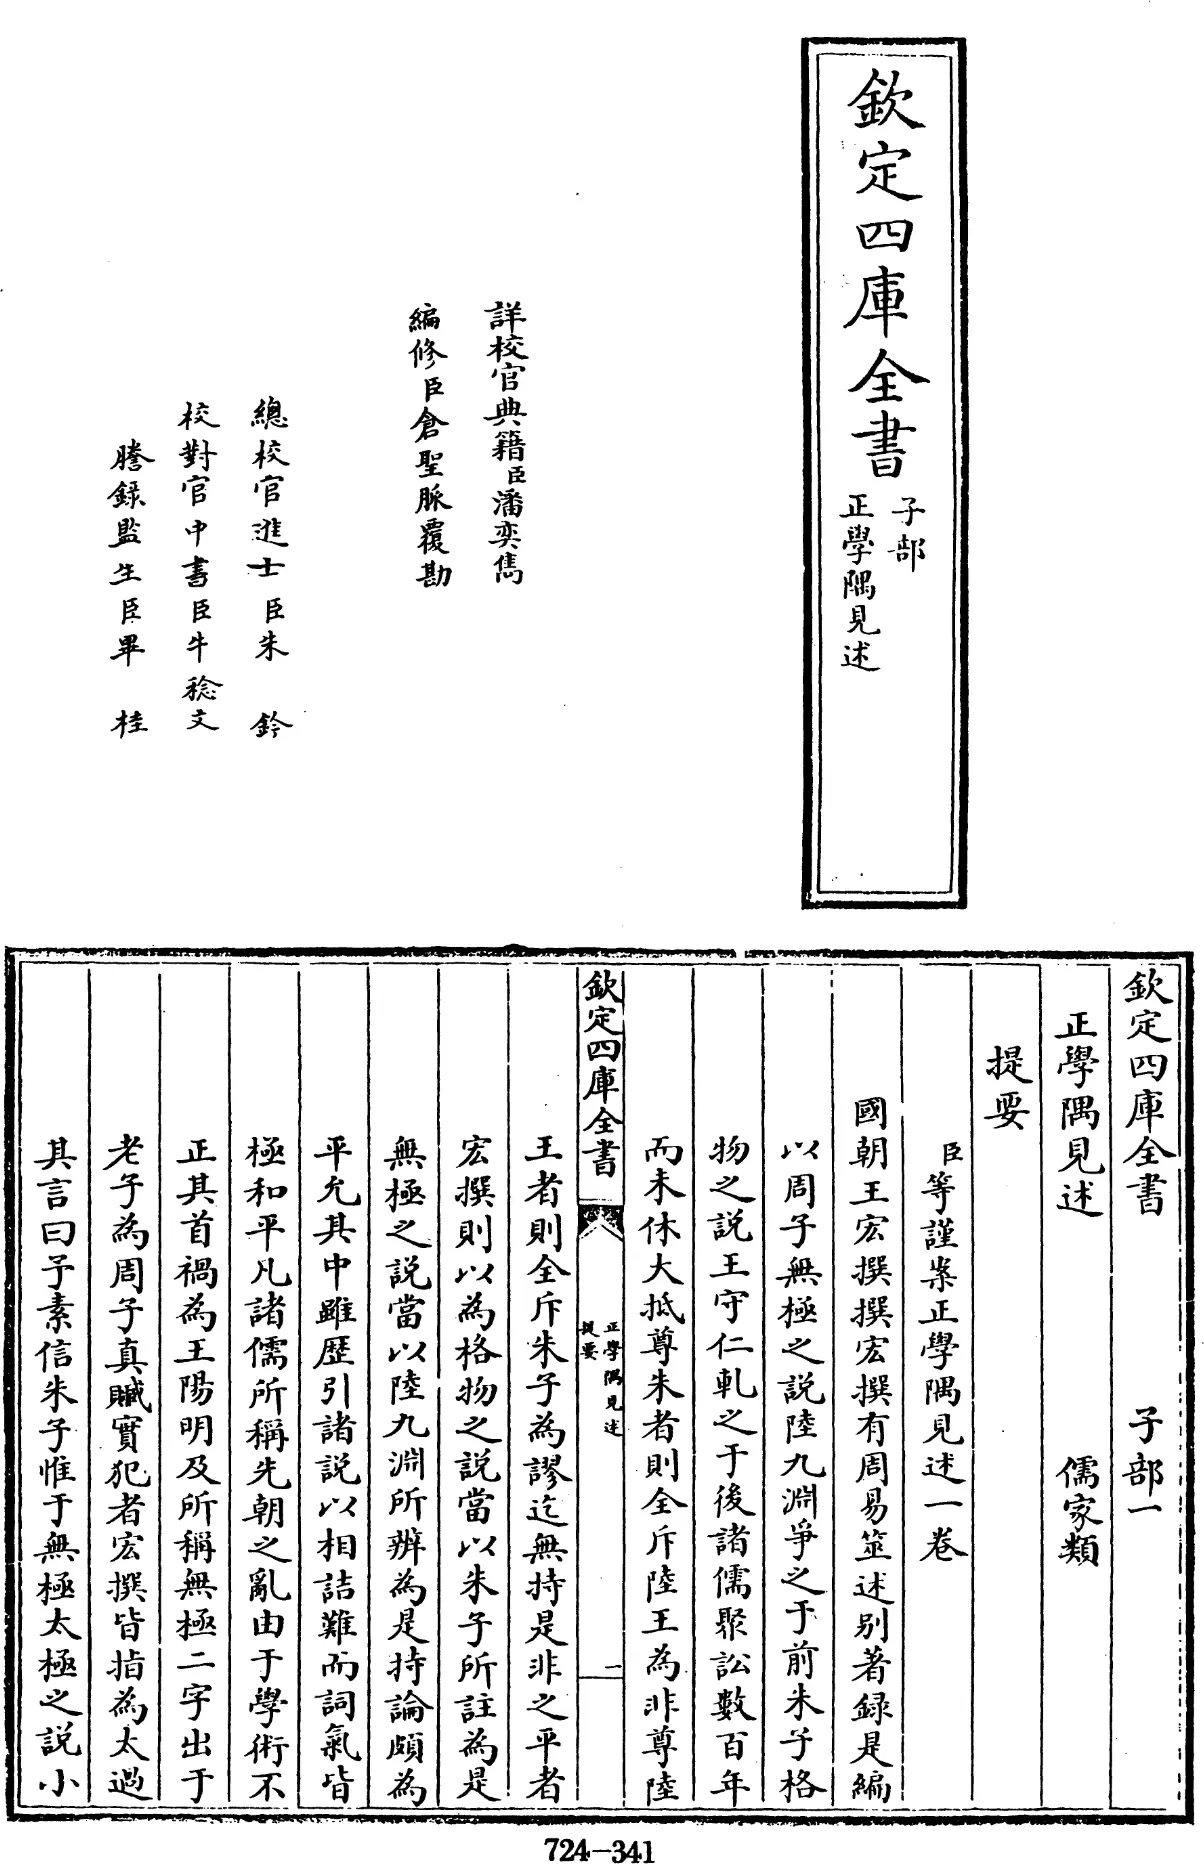 欽定四庫全書
子部
正學隅見述
詳校官典籍臣潘奕雋
編修臣倉聖脈覆勘
總校官進士臣朱鈐
校對官中書臣牛稔文
謄録監生臣畢桂
欽定四庫全書 子部一
正學隅見述 儒家類
提要
臣等謹案正學隅見述一卷
國朝王宏撰撰宏撰有周易筮述别著録是編
以周子無極之説陸九淵爭之于前朱子格
物之説王守仁軋之于後諸儒聚訟數百年
而未休大抵尊朱者則全斥陸王為非尊陸
欽定四庫全書
正學隅見述
提要
一
王者則全斥朱子為謬迄無持是非之平者
宏撰則以為格物之説當以朱子所註為是
無極之説當以陸九淵所辨為是持論頗為
平允其中雖歷引諸説以相詰難而詞氣皆
極和平凡諸儒所稱先朝之亂由于學術不
正其首禍為王陽明及所稱無極二字出于
老子為周子真贓實犯者宏撰皆指為太過
其言曰予素信朱子惟于無極太極之説小
724-341